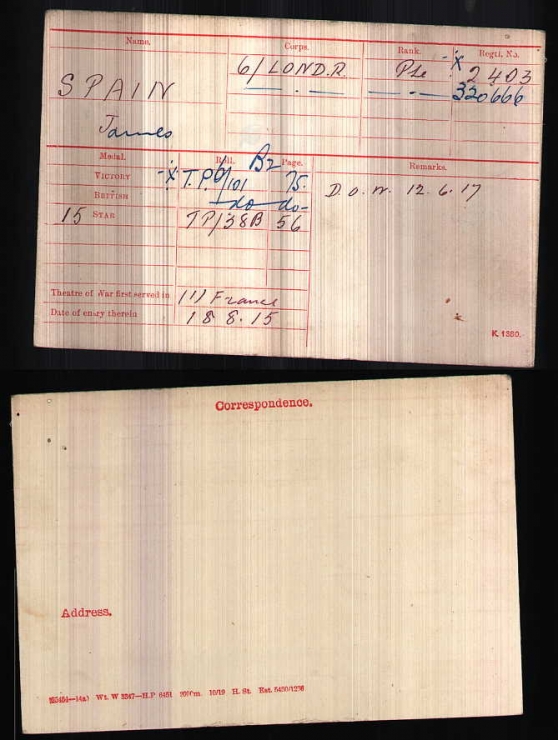 Name. Corps. Rank. Regtl. No.
SPAIN 6/LOND.R. Pte X 2403
—„— —„— 320666
James
Medal. Roll. B2 Page.
Remarks.
VICTORY X T.P. 6/101 75.
D.o.W. 12.6.17
BRITISH do do
15 STAR TP/38B 56
Theatre of War first served in (1) France
Date of entry therein 18.8.15
K. 1380.
Correspondence.
Address.
Wt. W 3347—H.P 6451 10/19 H. St.